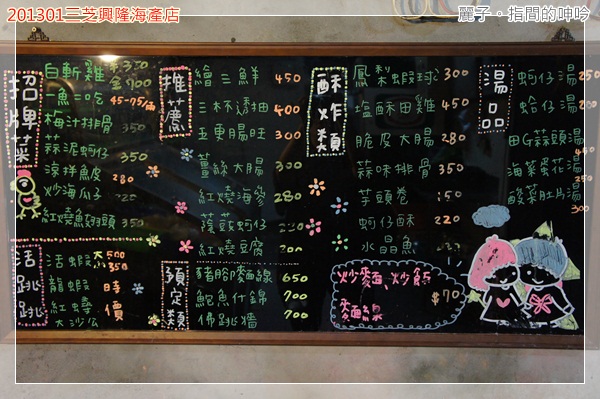 201301三芝興隆海產店
麗子。指間的呻吟
招牌菜
白斬雞 半350 全700
一魚二吃 45-75/兩
梅汁排骨 350
蒜泥蚵仔 350
涼拌魚皮 280
炒海瓜子 220
紅燒魚頭 350
推薦
繪三鮮 450
三杯透抽 400
五更腸旺 300
薑絲大腸 300
紅燒海參 280
蔭豉蚵仔
紅燒豆腐
酥炸類
鳳梨蝦球 300
塩酥田雞 450
脆皮大腸 280
蒜味排骨 350
芋頭卷 150
蚵仔酥 220
水晶魚
湯品
蚵仔湯 250
蛤仔湯 200
田G蒜頭湯 450
海菜蛋花湯 250
酸菜肚片湯 300
活跳跳
活蝦 大500 小350
龍蝦 時
紅蟳 價
大沙公
預定類
豬腳麵線 650
鮑魚什錦 700
佛跳牆 700
炒麵、炒飯
麵線 $70